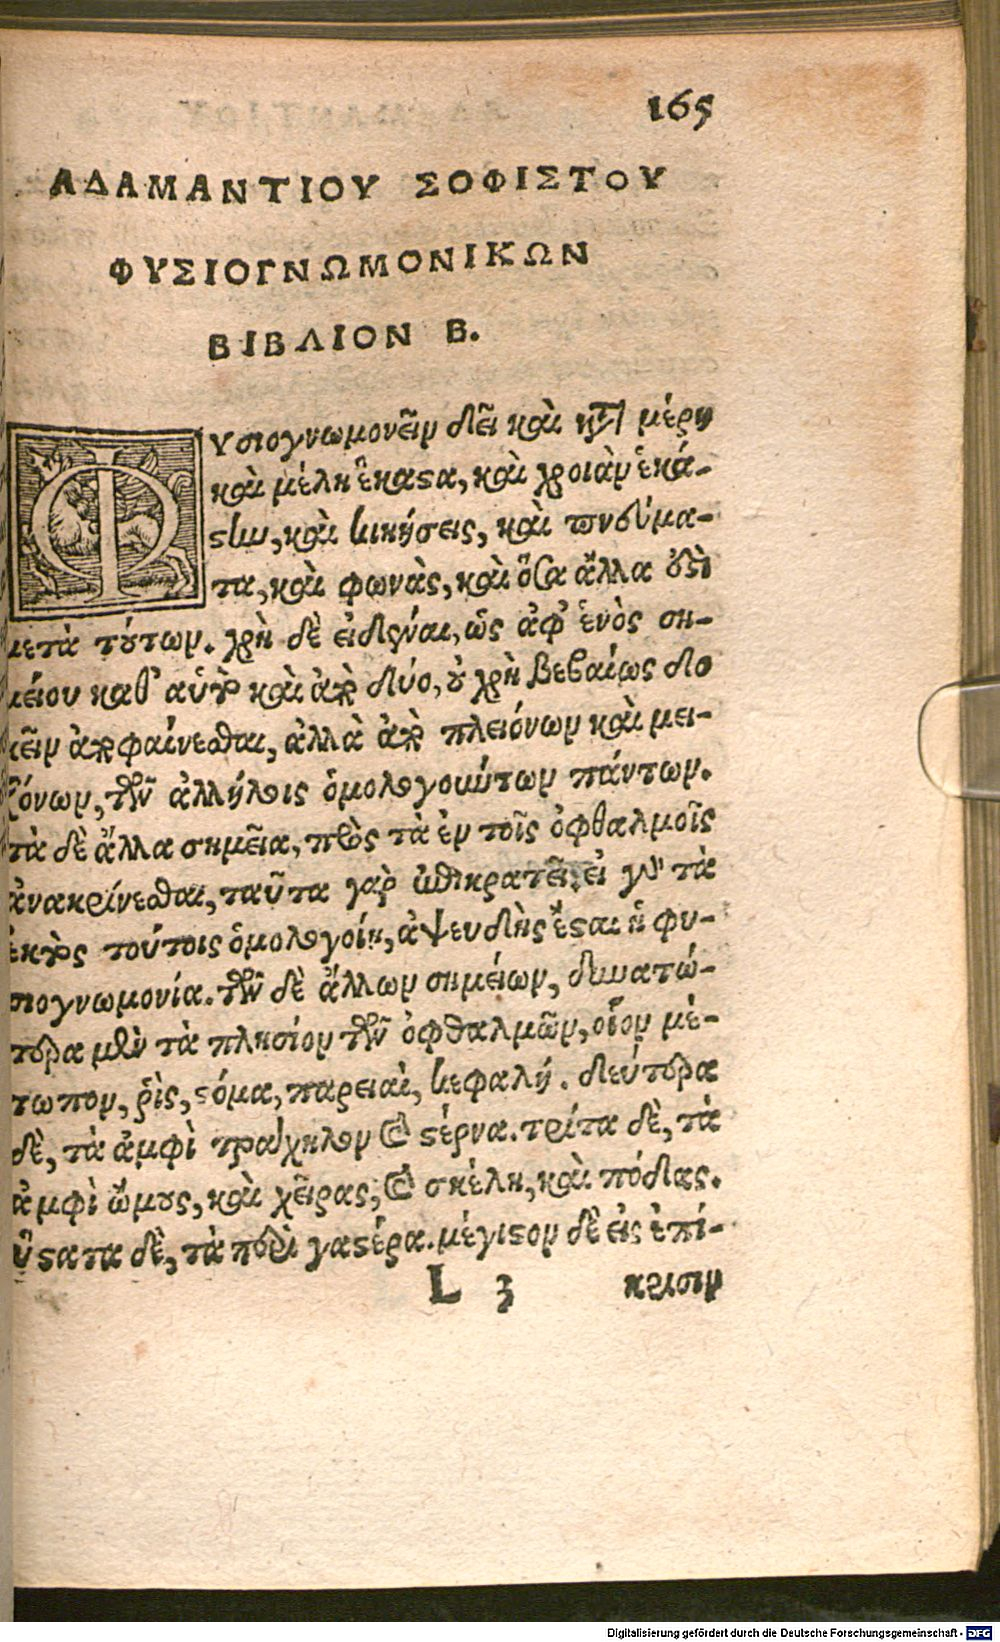 165
ΑΔΑΜΑΝΤΙΟΥ ΣΟΦΙΣΤΟΥ
ΦΥΣΙΟΓΝΩΜΟΝΙΚΩΝ
ΒΙΒΛΙΟΝ Β.
Φυσιογνωμονεῖν δεῖ καὶ κτ̃ μέρη
καὶ μέλη ἕκαϛα, καὶ χροιὰν ἑκά-
ϛην, καὶ κινήσεις, καὶ πνεύμα-
τα, καὶ φωνὰς, καὶ ὅσα ἄλλα ὄξὶ
μετὰ τούτων. χρὴ δὲ εἰδέναι, ὡς ἀφ' ἑνὸς ση-
μείου καθ' αὑτὸ καὶ ἀπὸ δύο, οὐ χρὴ βεβαίως δο
κεῖν ἀποφαίνεσθαι, ἀλλὰ ἀπὸ πλειόνων καὶ μει-
ζόνων, τῶν ἀλλήλοις ὁμολογούντων πάντων.
τὰ δὲ ἄλλα σημεῖα, πρὸς τὰ ἐν τοῖς ὀφθαλμοῖς
ἀνακρίνεσθαι, ταῦτα γὰρ ἐπικρατεῖ, εἰ γὰρ τὰ
ἐκτὸς τούτοις ὁμολογοίη, ἀψευδὴς ἔϛαι ἡ φυ-
σιογνωμονία. τῶν δὲ ἄλλων σημείων, δυνατώ-
τερα μὲν τὰ πλησίον τῶν ὀφθαλμῶν, οἷον μέ-
τωπον, ῥὶς, ϛόμα, παρειαὶ, κεφαλή. δεύτερα
δὲ, τὰ ἀμφὶ τράχηλον καὶ ϛέρνα. τρίτα δὲ, τὰ
ἀμφὶ ὤμους, καὶ χεῖρας, καὶ σκέλη, καὶ πόδας.
ὕϛατα δὲ, τὰ περὶ γαϛέρα. μέγιϛον δὲ εἰς ἐπί-
L 3 κρισιν
Digitalisierung gefördert durch die Deutsche Forschungsgemeinschaft - DFG